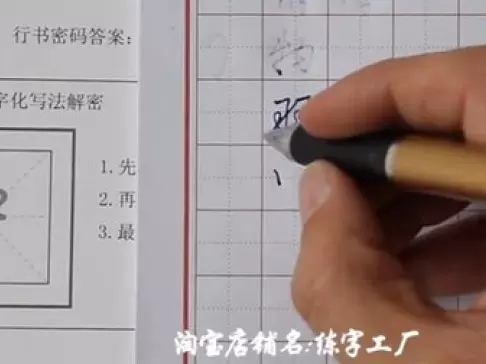 行书密码答案:
字化写法解密
1.先
2.再
3.最
淘宝店铺名:练字工厂